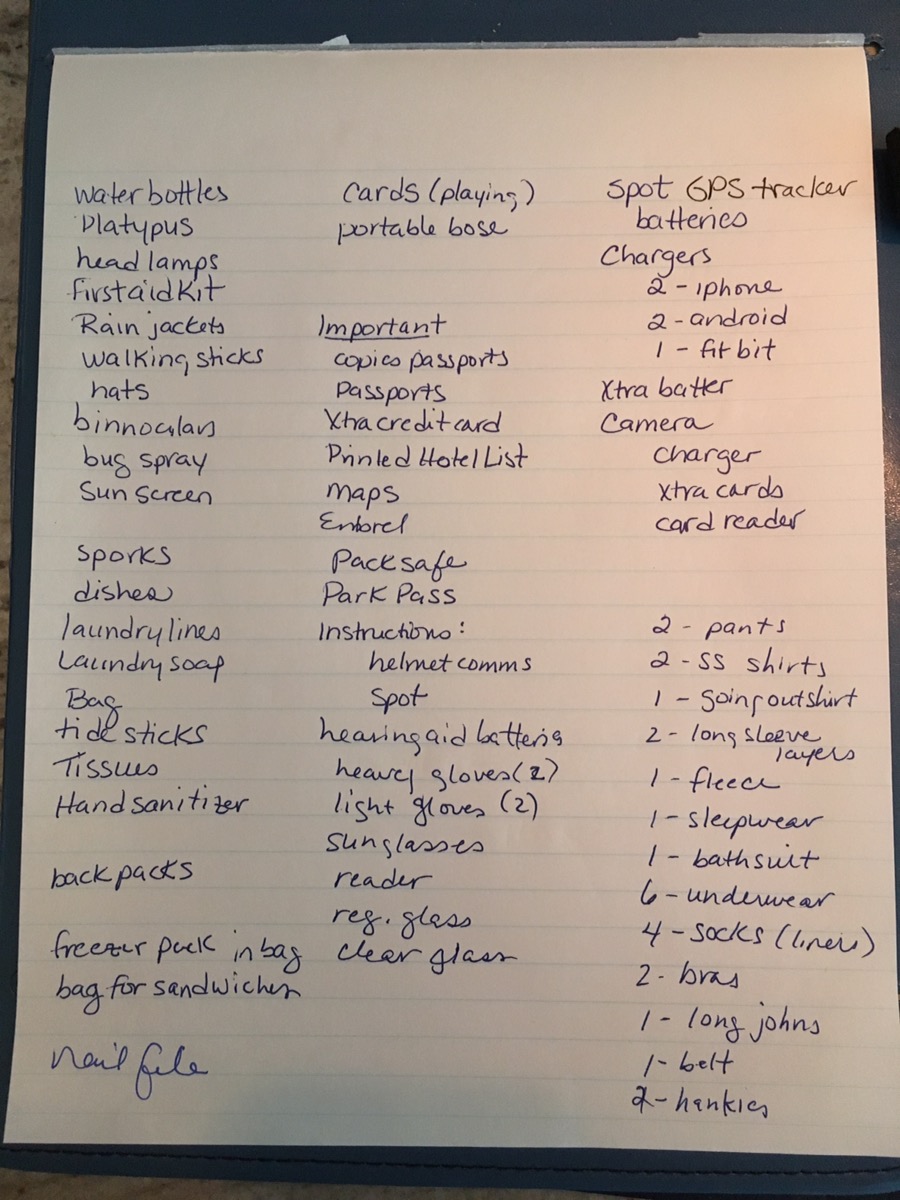 water bottles
Platypus
head lamps
first aid kit
Rain jackets
walking sticks
hats
binnoculars
bug spray
Sun screen
sporks
dishes
laundry lines
Laundry soap
Bag
tide sticks
Tissues
Hand sanitizer
back packs
freezer pack in bag
bag for sandwiches
nail file
Cards (playing)
portable bose
Important
copies passports
Passports
Xtra credit card
Printed Hotel List
maps
Enbrel
Pack safe
Park Pass
Instructions:
helmet comms
Spot
hearing aid batteries
heavy gloves (2)
light gloves (2)
sunglasses
reader
reg. glass
clear glass
Spot GPS tracker
batteries
Chargers
2 - iphone
2 - android
1 - fit bit
Xtra batter
Camera
charger
xtra cards
card reader
2 - pants
2 - SS shirts
1 - going out shirt
2 - long sleeve
layers
1 - fleece
1 - sleepwear
1 - bathsuit
6 - underwear
4 - socks (liners)
2 - bras
1 - long johns
1 - belt
2 - hankies